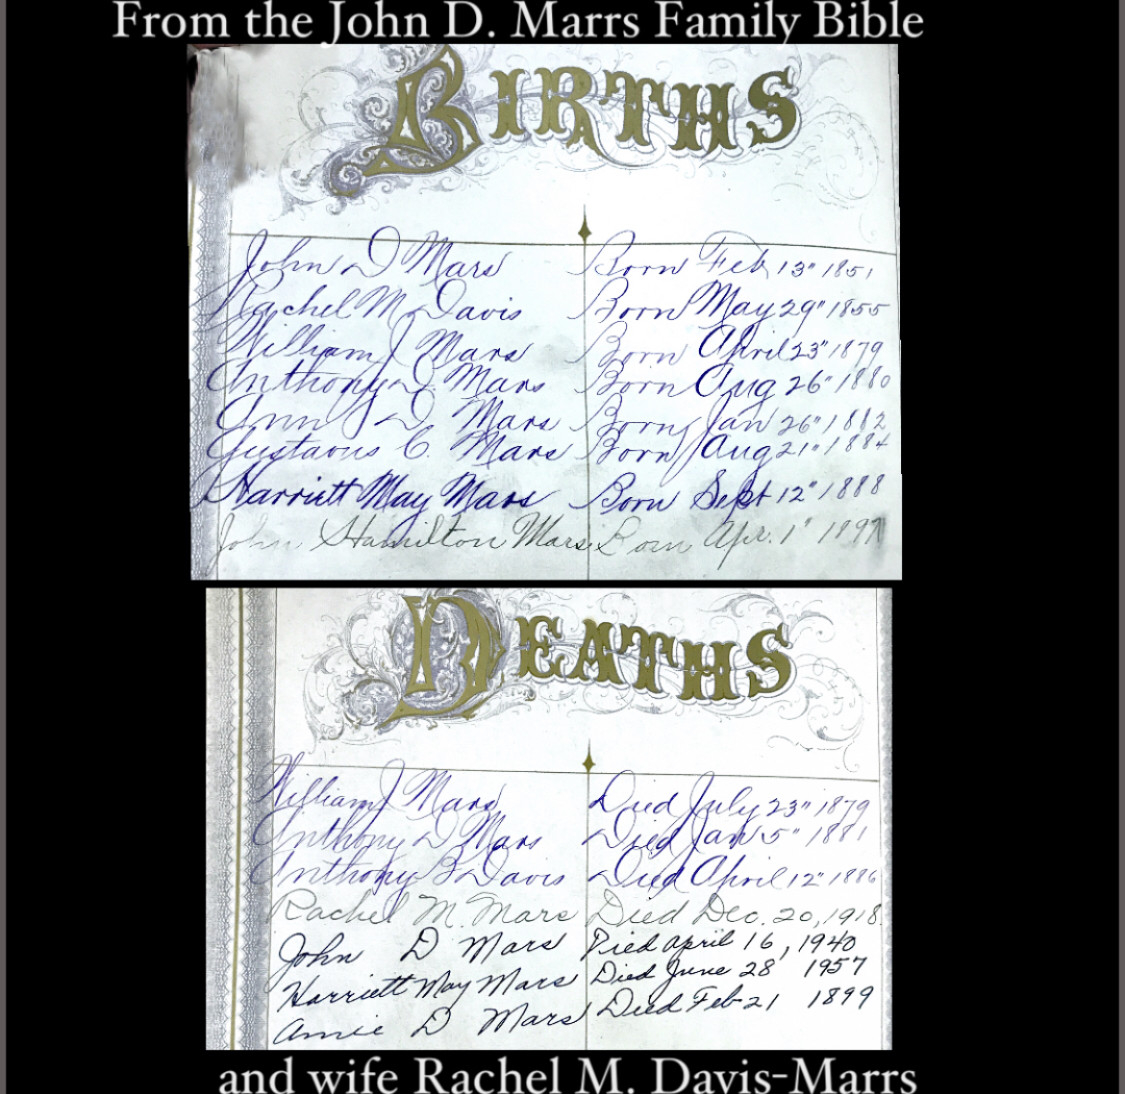 From the John D. Marrs Family Bible
BIRTHS
John D Mars Born Feb 13" 1851
Rachel M Davis Born May 29" 1855
William J Mars Born April 23" 1879
Anthony D. Mars Born Aug 26" 1880
Ann D. Mars Born Jan 26" 1882
Gustavus C. Mars Born Aug 21" 1884
Harriett May Mars Born Sept 12" 1888
John Hamilton Mars Born Apr. 1" 1897
DEATHS
William J Mars Died July 23" 1879
Anthony D Mars Died Jan 5" 1881
Anthony B Davis Died April 12" 1886
Rachel M. Mars Died Dec. 20, 1918
John D Mars Died April 16, 1940
Harriett May Mars Died June 28 1957
Annie D Mars Died Feb 21 1899
and wife Rachel M. Davis-Marrs